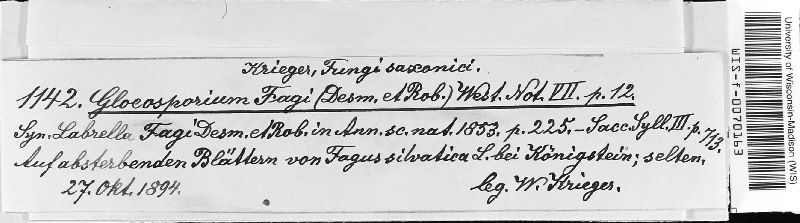 Krieger, Fungi saxonici.
1142. Gloeosporium Fagi (Desm. et Rob.) West. Not. VII. p. 12.
Syn. Labrella Fagi Desm. et Rob. in Ann. sc. nat. 1853. p. 225. – Sacc. Syll. III. p. 713.
Auf absterbenden Blättern von Fagus silvatica L. bei Königstein; selten.
27. Okt. 1894. leg. W. Krieger.
University of Wisconsin-Madison (WIS)
WIS-f-0070163